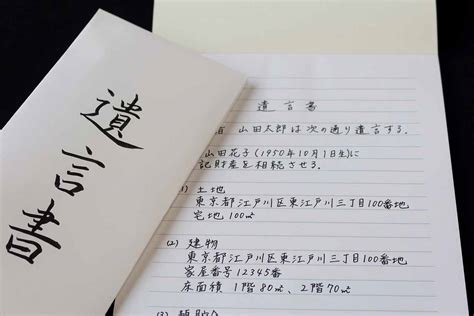 遺言書
遺言書
山田太郎は次の通り遺言する。
山田花子(1950年10月1日生)に
記財産を相続させる。
(1) 土地
東京都江戸川区東江戸川三丁目100番地
宅地 100㎡
(2) 建物
東京都江戸川区東江戸川三丁目100番地
家屋番号 12345番
床面積 1階80㎡、2階70㎡